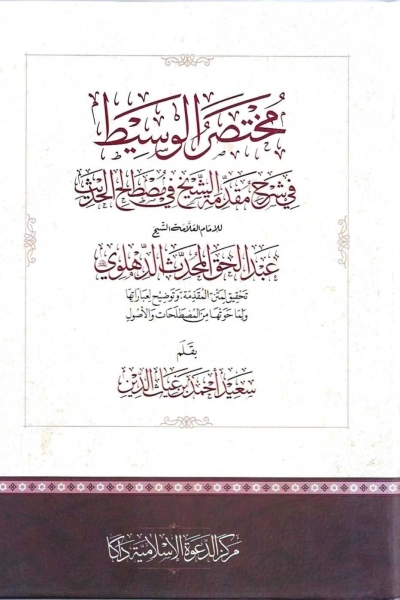 مُخْتَصَرُ الْوَسِيْطِ
فِيْ شَرْحِ مُقَدِّمَةِ الشَّيْخِ فِيْ مُصْطَلَحِ الْحَدِيْثِ
للإمام العلّامة الشيخ
عَبْدِ الْحَقِّ الْمُحَدِّثِ الدِّهْلَوِيِّ
تَحْقِيْقٌ لِمَتْنِ الْمُقَدِّمَةِ، وَتَوْضِيْحٌ لِعِبَارَاتِهَا
وَلِمَا حَوَتْهَا مِنَ الْمُصْطَلَحَاتِ وَالْأُصُوْلِ
بِقَلَمِ
سَعِيْد أَحْمَد بْن غِيَاث الدِّيْن
مَرْكَزُ الدَّعْوَةِ الْإِسْلَامِيَّةِ دَاكَا